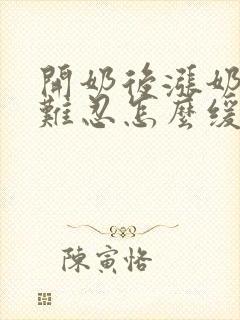 開奶後漲奶
難忍怎麼緩
陳寅恪